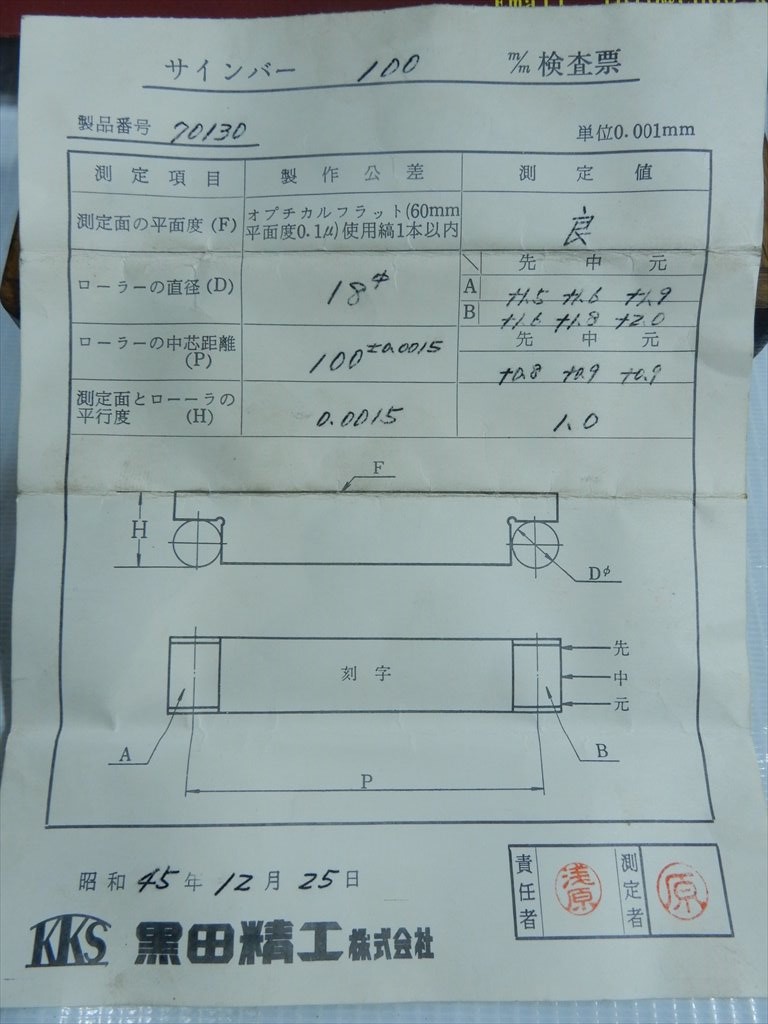 サインバー 100 m/m 検査票
製品番号 70130 単位0.001mm
測定項目 製作公差 測定値
測定面の平面度 (F) オプチカルフラット(60mm 平面度0.1μ)使用縞1本以内 良
先 中 元
ローラーの直径 (D) 18φ A +1.5 +1.6 +1.9
B +1.6 +1.8 +2.0
ローラーの中芯距離 (P) 100±0.0015 先 中 元
+0.8 +0.9 +0.9
測定面とローーラの 平行度 (H) 0.0015 1.0
F
H
Dφ
刻字
先
中
元
A
B
P
昭和 45 年 12 月 25 日
責任者 浅原 測定者 原
KKS 黒田精工株式会社